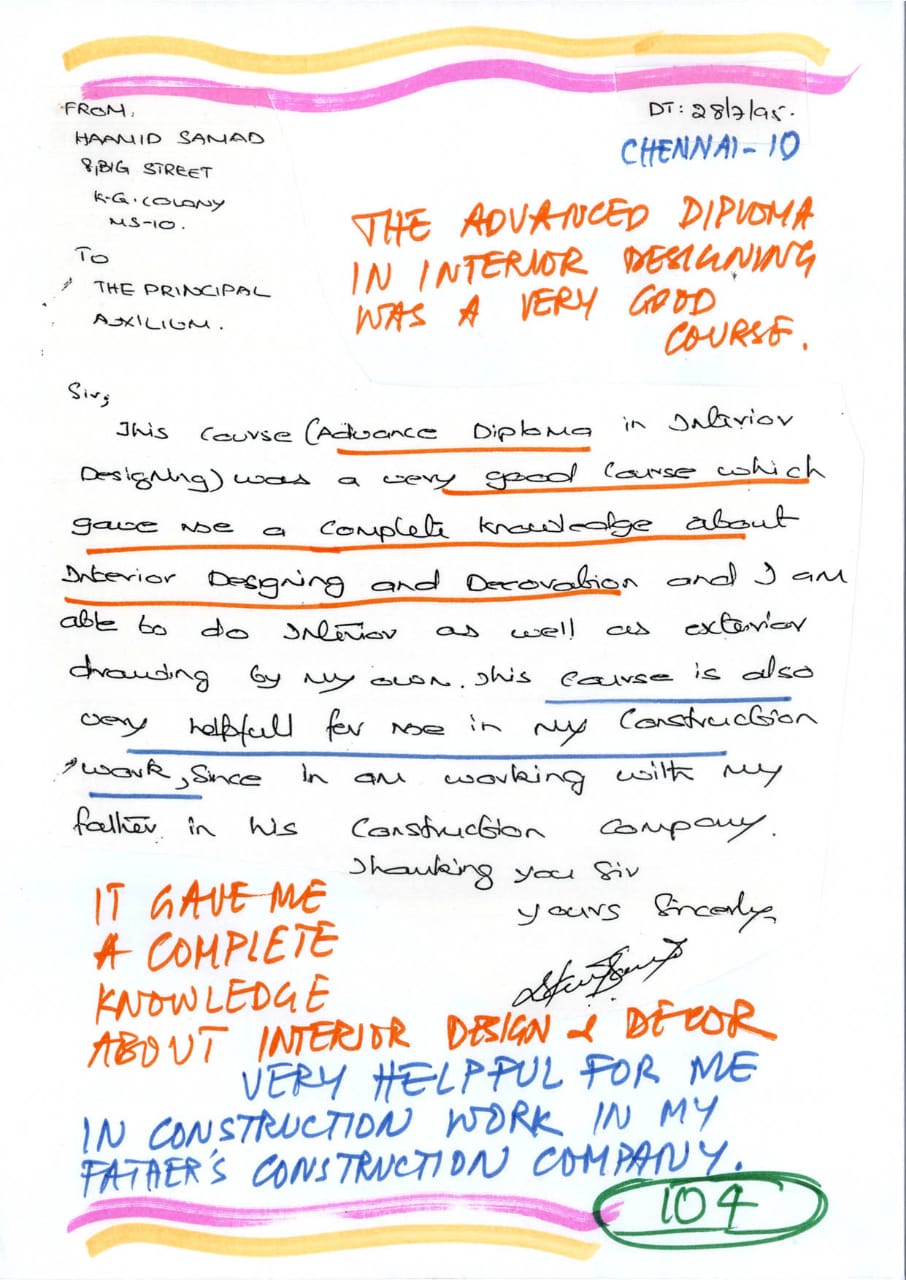 FROM,
HAAMID SAMAD
8, BIG STREET
K.G. COLONY
MS-10.
TO
THE PRINCIPAL
AUXILIUM.
DT: 28/7/95.
CHENNAI-10
THE ADVANCED DIPLOMA
IN INTERIOR DESIGNING
WAS A VERY GOOD
COURSE.
Sir,
This course (Advance Diploma in Interior
Designing) was a very good course which
gave me a complete knowledge about
Interior Designing and Decoration and I am
able to do Interior as well as exterior
drawing by my own. This course is also
very helpfull for me in my construction
work, Since in am working with my
father in his construction company.
Thanking you Sir
yours Sincerly,
IT GAVE ME
A COMPLETE
KNOWLEDGE
ABOUT INTERIOR DESIGN & DECOR
VERY HELPFUL FOR ME
IN CONSTRUCTION WORK IN MY
FATHER'S CONSTRUCTION COMPANY.
104